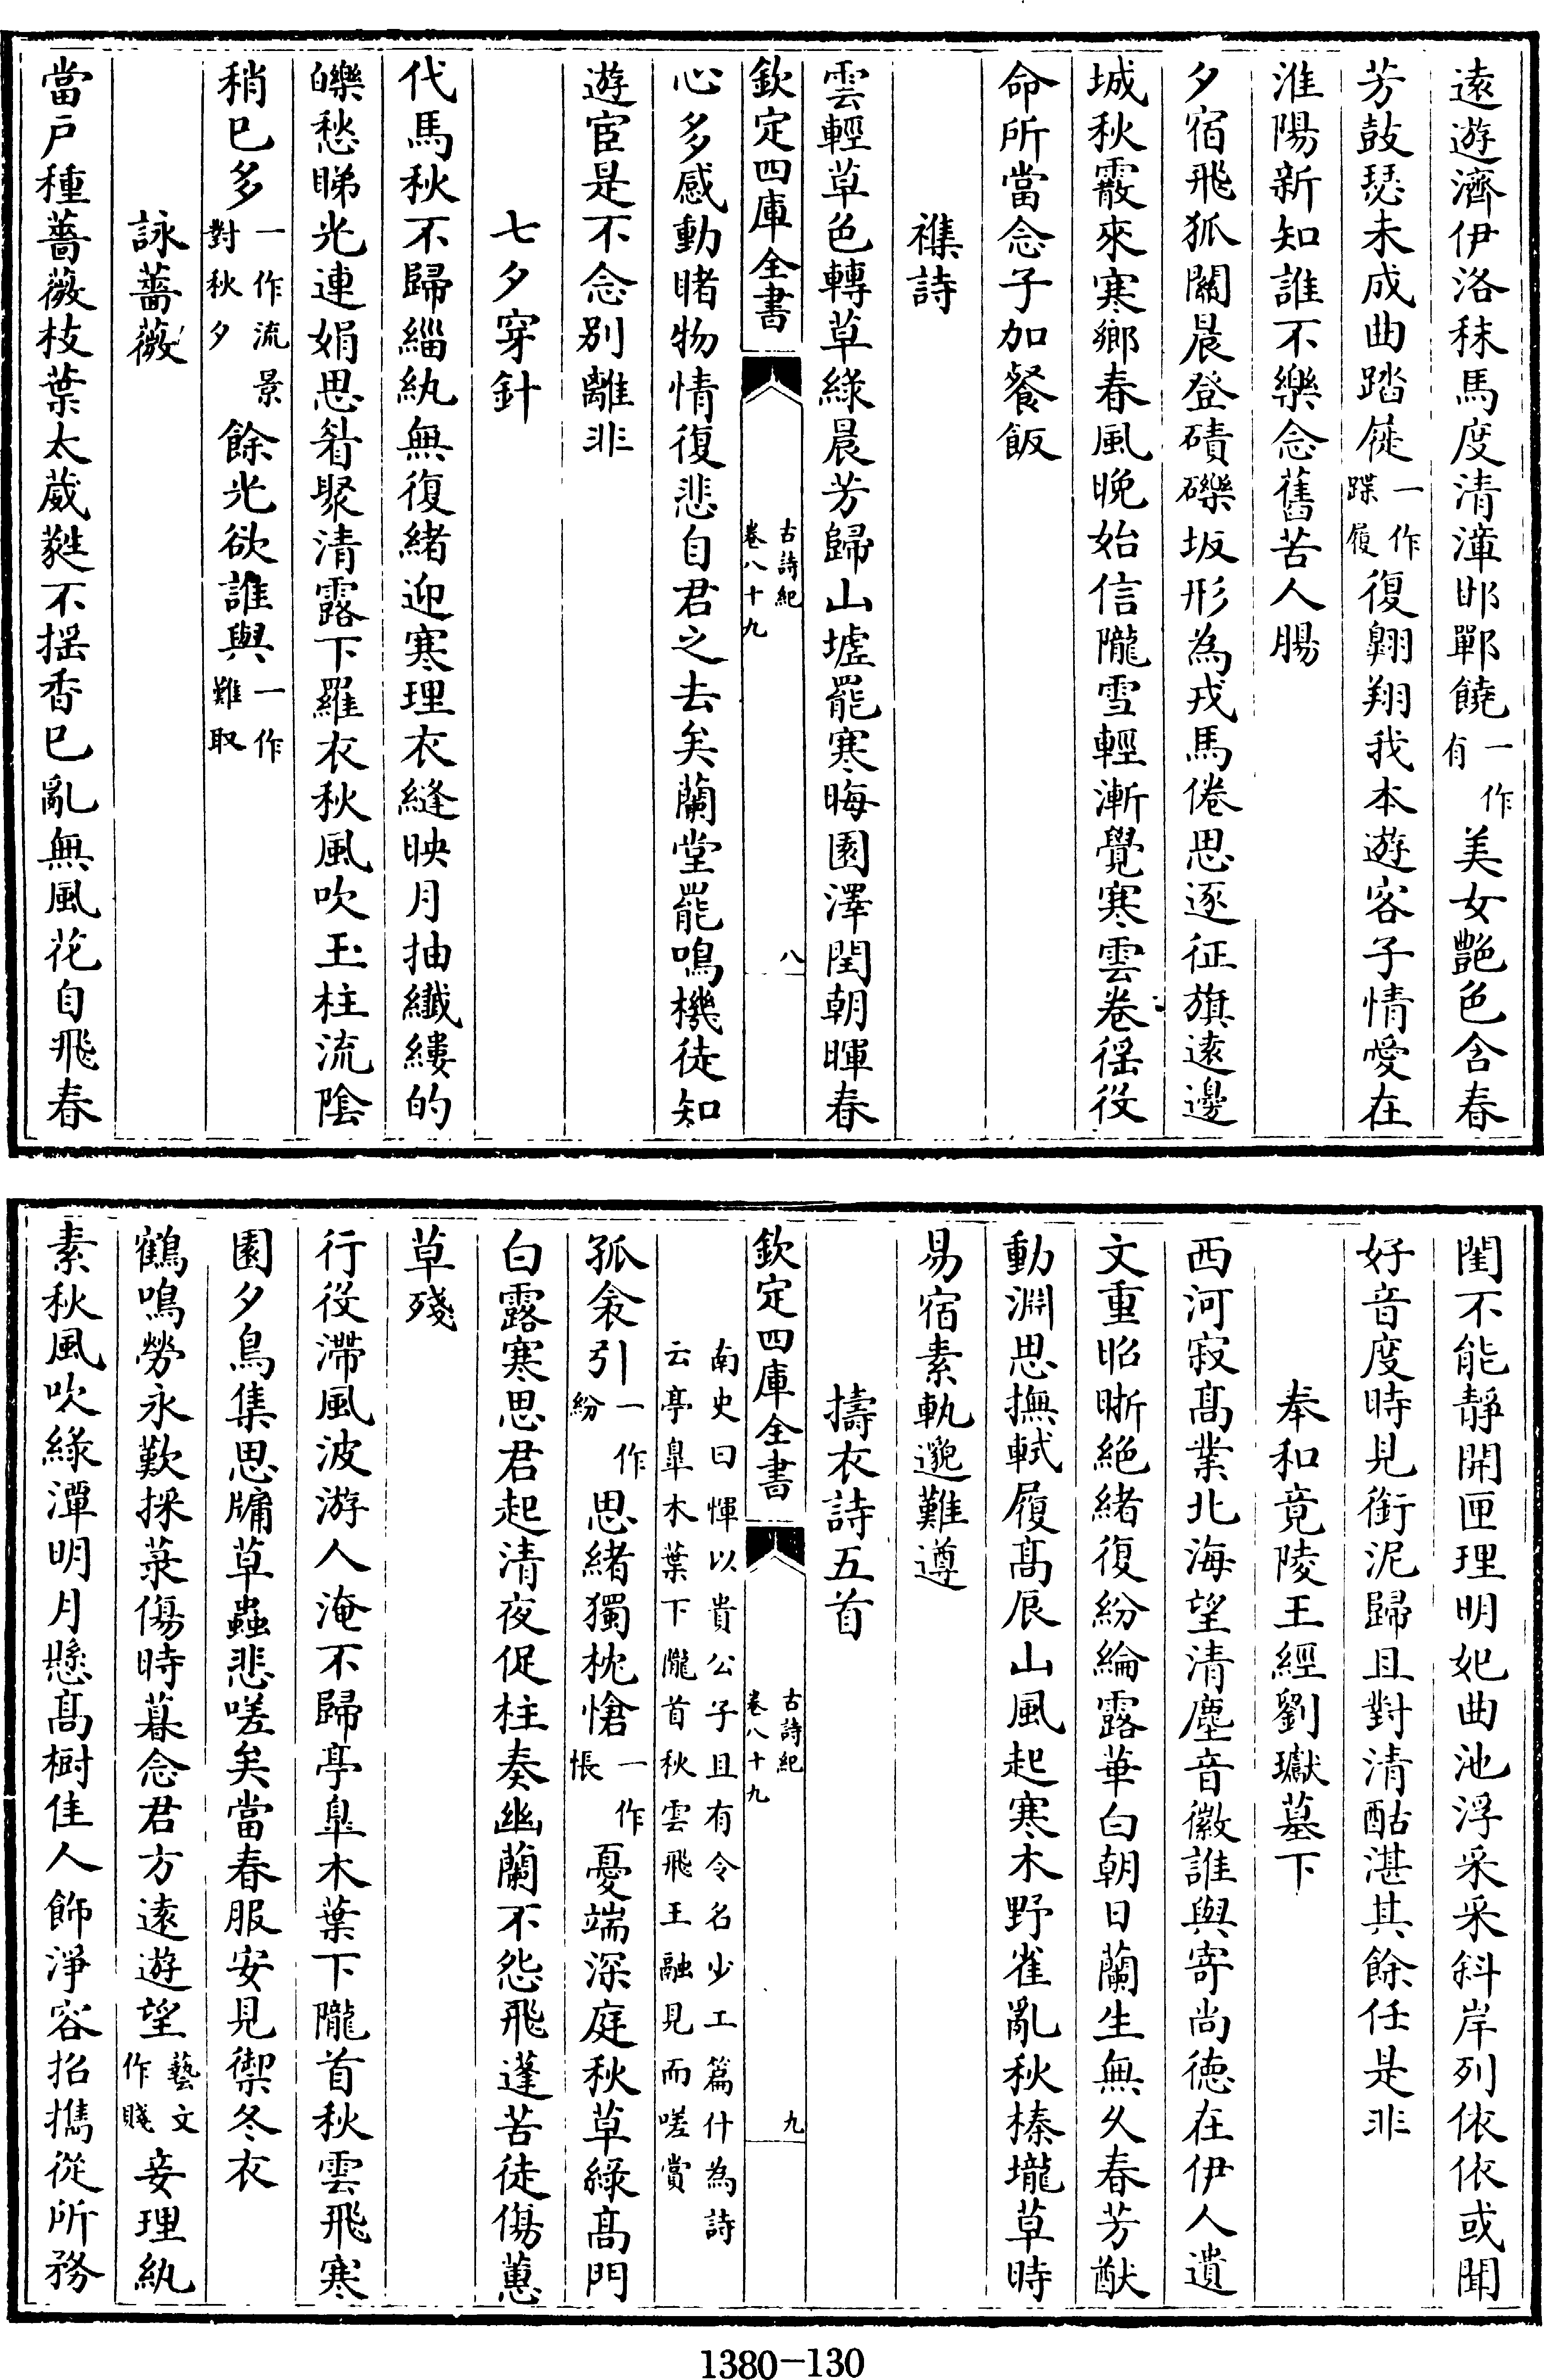 遠遊濟伊洛秣馬度清漳邯鄲饒一作有美女艷色含春
芳鼓瑟未成曲踏屣一作蹀履復翺翔我本遊客子情愛在
淮陽新知誰不樂念舊苦人腸
夕宿飛狐關晨登磧礫坂形為戎馬倦思逐征旗遠邊
城秋霰來寒鄉春風晚始信隴雪輕漸覺寒雲卷徭役
命所當念子加餐飯
襍詩
雲輕草色轉草綠晨芳歸山墟罷寒晦園澤閏朝暉春
欽定四庫全書
古詩紀
卷八十九
八
心多感動睹物情復悲自君之去矣蘭堂罷鳴機徒知
遊宦是不念別離非
七夕穿針
代馬秋不歸緇紈無復緒迎寒理衣縫映月抽纖縷的
皪愁睇光連娟思眉聚清露下羅衣秋風吹玉柱流陰
稍已多一作流景對秋夕餘光欲誰與一作難取
詠薔薇
當戶種薔薇枝葉太葳蕤不揺香已亂無風花自飛春
閨不能靜開匣理明妃曲池浮采采斜岸列依依或聞
好音度時見銜泥歸且對清酤湛其餘任是非
奉和竟陵王經劉瓛墓下
西河寂髙業北海望清塵音徽誰與寄尚德在伊人遺
文重昭晰絶緒復紛綸露華白朝日蘭生無久春芳猷
動淵思撫軾履髙辰山風起寒木野雀亂秋榛壠草時
易宿素軌邈難遵
擣衣詩五首
欽定四庫全書
古詩紀
卷八十九
九
南史曰惲以貴公子且有令名少工篇什為詩
云亭臯木葉下隴首秋雲飛王融見而嗟賞
孤衾引一作紛思緒獨枕愴一作悵憂端深庭秋草綠髙門
白露寒思君起清夜促柱奏幽蘭不怨飛蓬苦徒傷蕙
草殘
行役滯風波游人淹不歸亭臯木葉下隴首秋雲飛寒
園夕鳥集思牖草蟲悲嗟矣當春服安見禦冬衣
鶴鳴勞永歎採菉傷時暮念君方遠遊望藝文作賤妾理紈
素秋風吹綠潭明月懸髙樹佳人飾淨容招攜從所務
1380-130